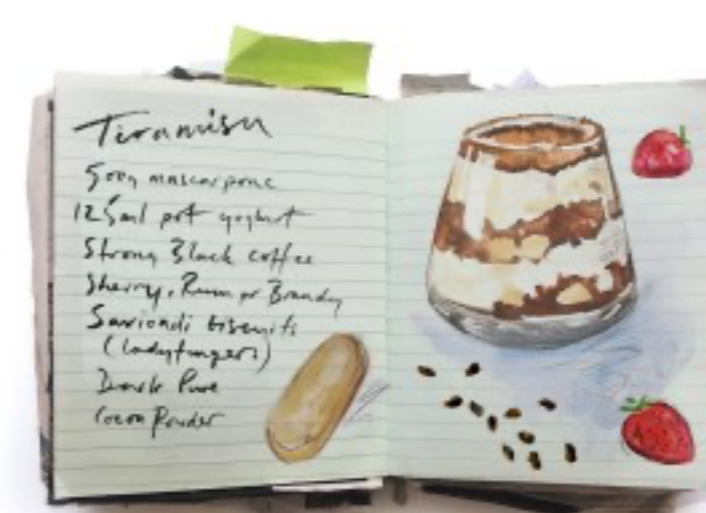 Tiramisu
500g mascarpone
125ml pot yoghurt
Strong Black coffee
Sherry, Rum or Brandy
Savioadi biscuits
(ladyfingers)
Dark Pure
Cocoa Powder